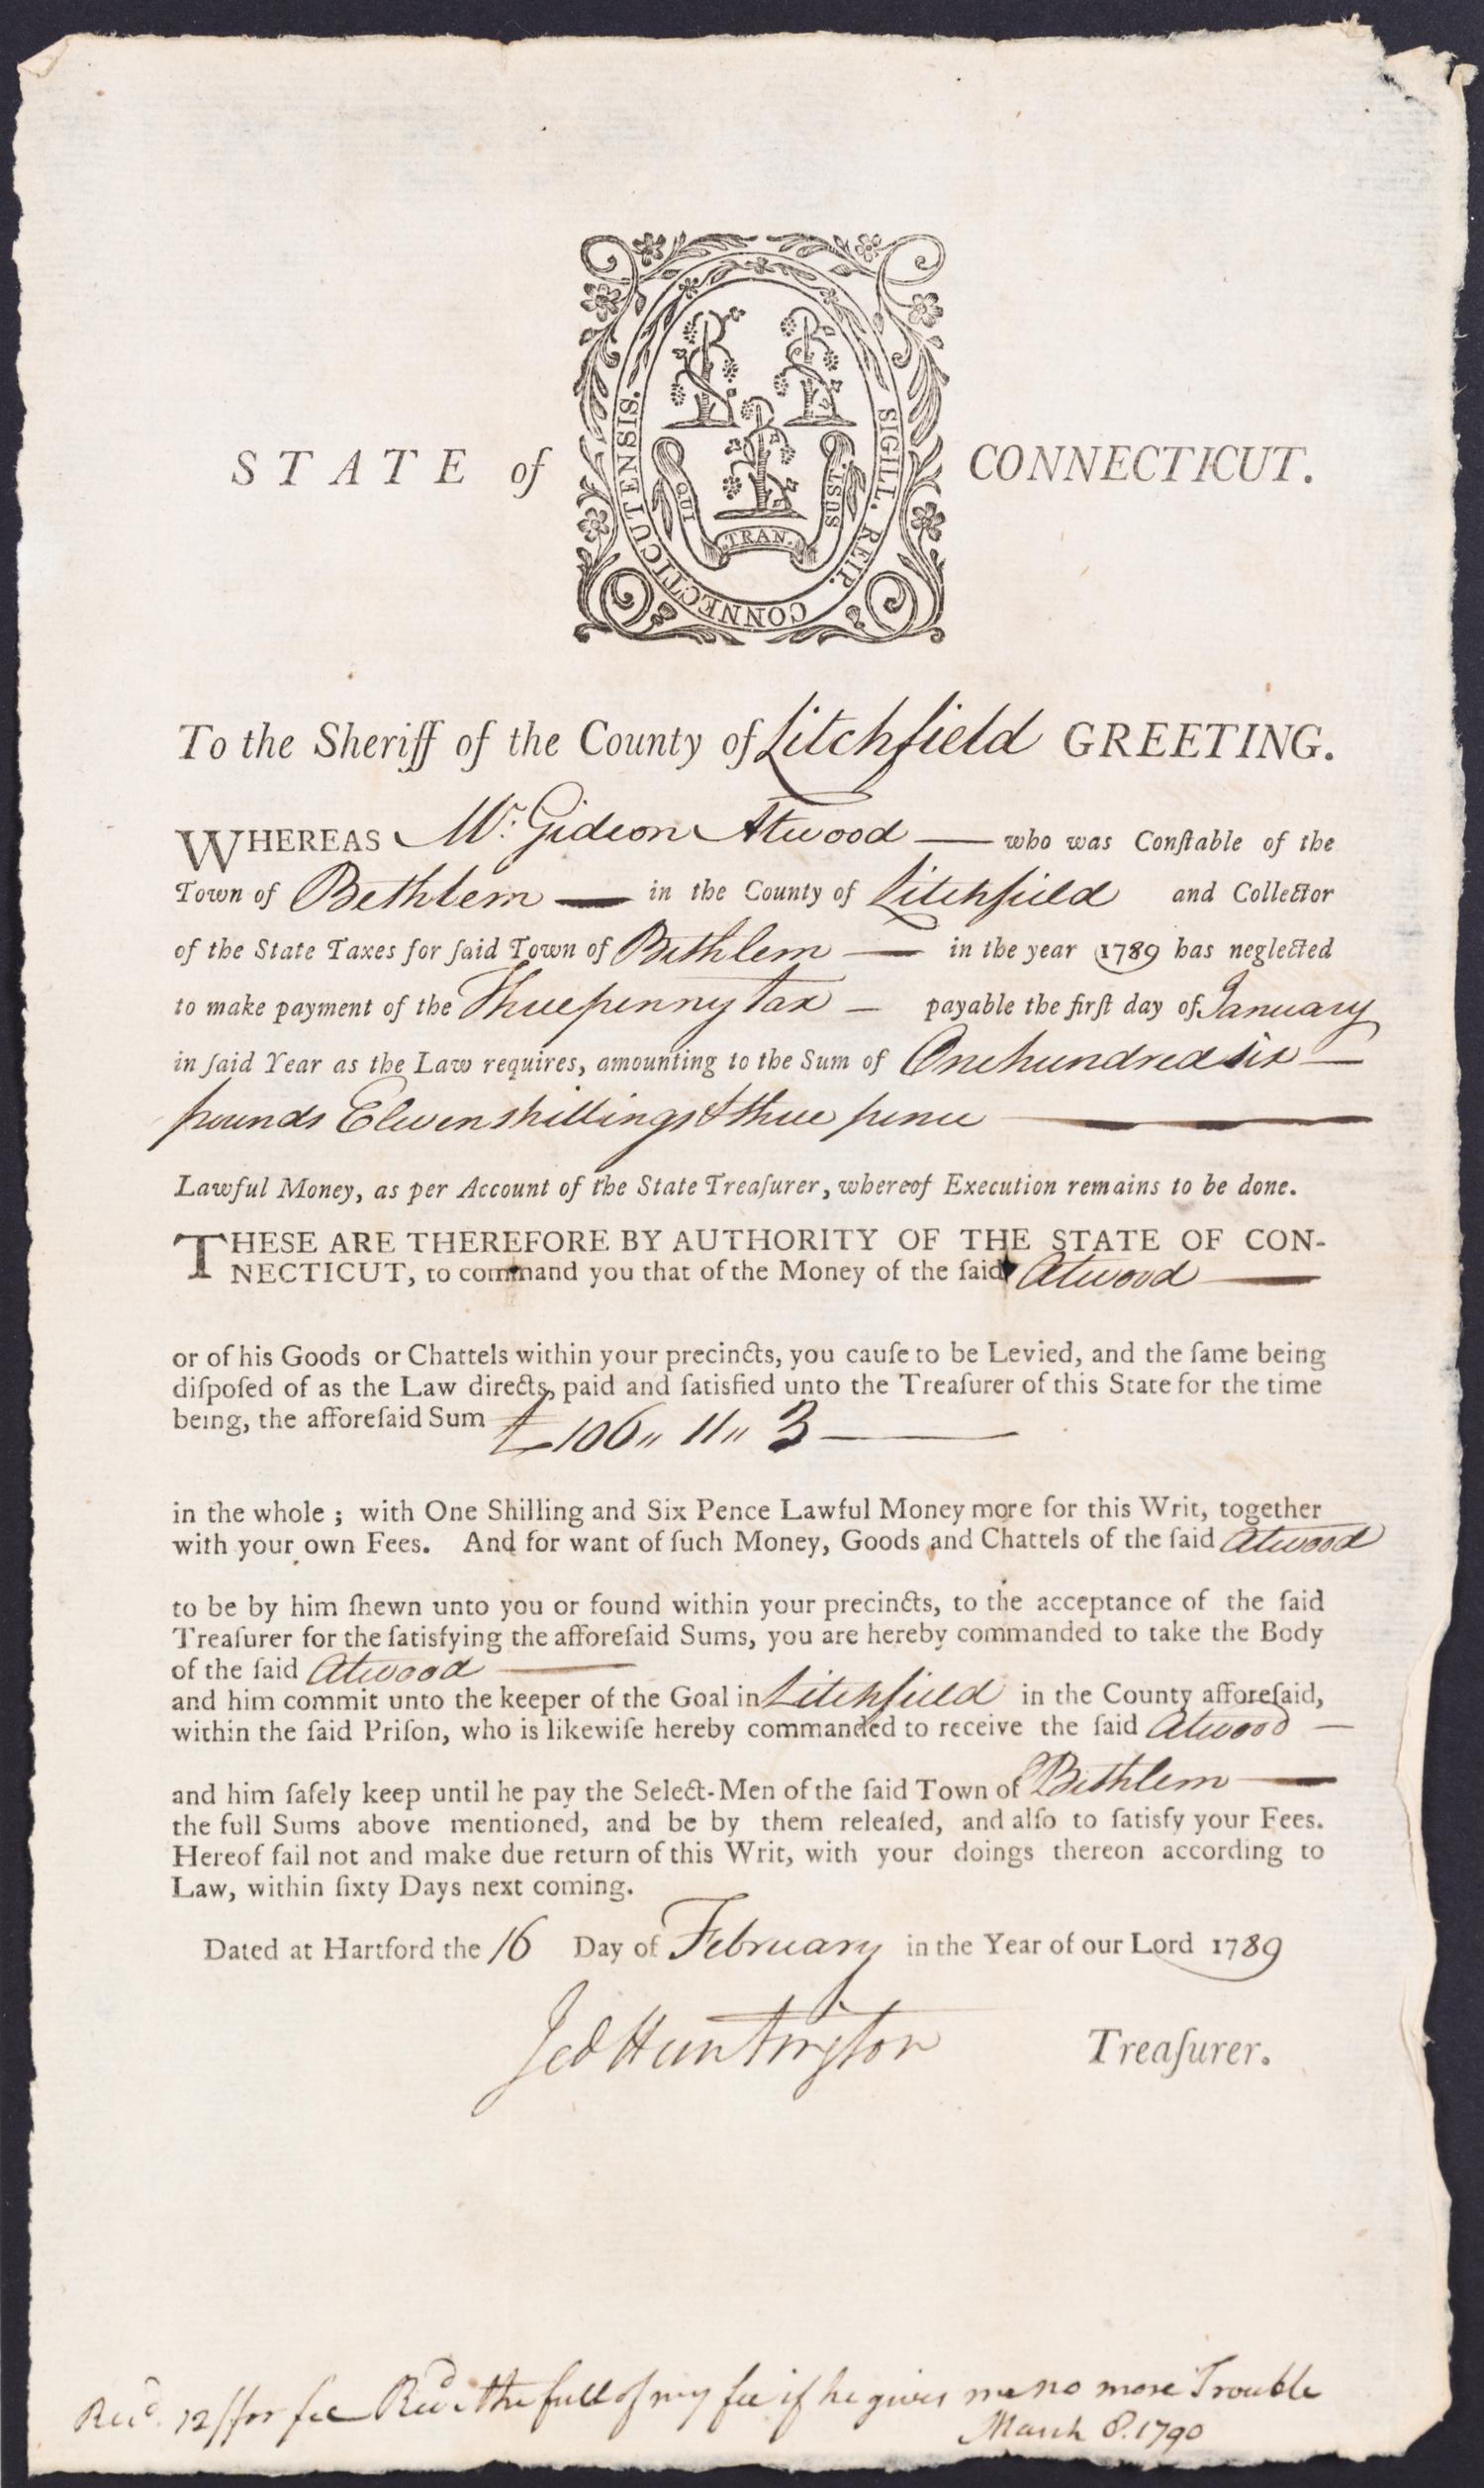 STATE of CONNECTICUT.
SIGILL. REIP. CONNECTICUTENSIS.
QUI TRAN. SUST.
To the Sheriff of the County of Litchfield GREETING.
WHEREAS Mr. Gideon Atwood — who was Conſtable of the
Town of Bethlem — in the County of Litchfield and Collector
of the State Taxes for ſaid Town of Bethlem — in the year 1789 has neglected
to make payment of the Threepenny Tax — payable the firſt day of January
in ſaid Year as the Law requires, amounting to the Sum of One hundred six —
pounds Eleven shillings & three pence —
Lawful Money, as per Account of the State Treaſurer, whereof Execution remains to be done.
THESE ARE THEREFORE BY AUTHORITY OF THE STATE OF CON-
NECTICUT, to command you that of the Money of the ſaid Atwood —
or of his Goods or Chattels within your precincts, you cauſe to be Levied, and the ſame being
diſpoſed of as the Law directs, paid and ſatisfied unto the Treaſurer of this State for the time
being, the afforeſaid Sum £106,, 11,, 3 —
in the whole ; with One Shilling and Six Pence Lawful Money more for this Writ, together
with your own Fees. And for want of ſuch Money, Goods and Chattels of the ſaid Atwood
to be by him ſhewn unto you or found within your precincts, to the acceptance of the ſaid
Treaſurer for the ſatisfying the afforeſaid Sums, you are hereby commanded to take the Body
of the ſaid Atwood —
and him commit unto the keeper of the Goal in Litchfield in the County afforeſaid,
within the ſaid Priſon, who is likewiſe hereby commanded to receive the ſaid Atwood —
and him ſafely keep until he pay the Select-Men of the ſaid Town of Bethlem —
the full Sums above mentioned, and be by them releaſed, and alſo to ſatisfy your Fees.
Hereof fail not and make due return of this Writ, with your doings thereon according to
Law, within ſixty Days next coming.
Dated at Hartford the 16 Day of February in the Year of our Lord 1789
Jed Huntington Treaſurer.
Recd. 12/ for fee Recd the full of my fee if he gives me no more Trouble
March 8. 1790